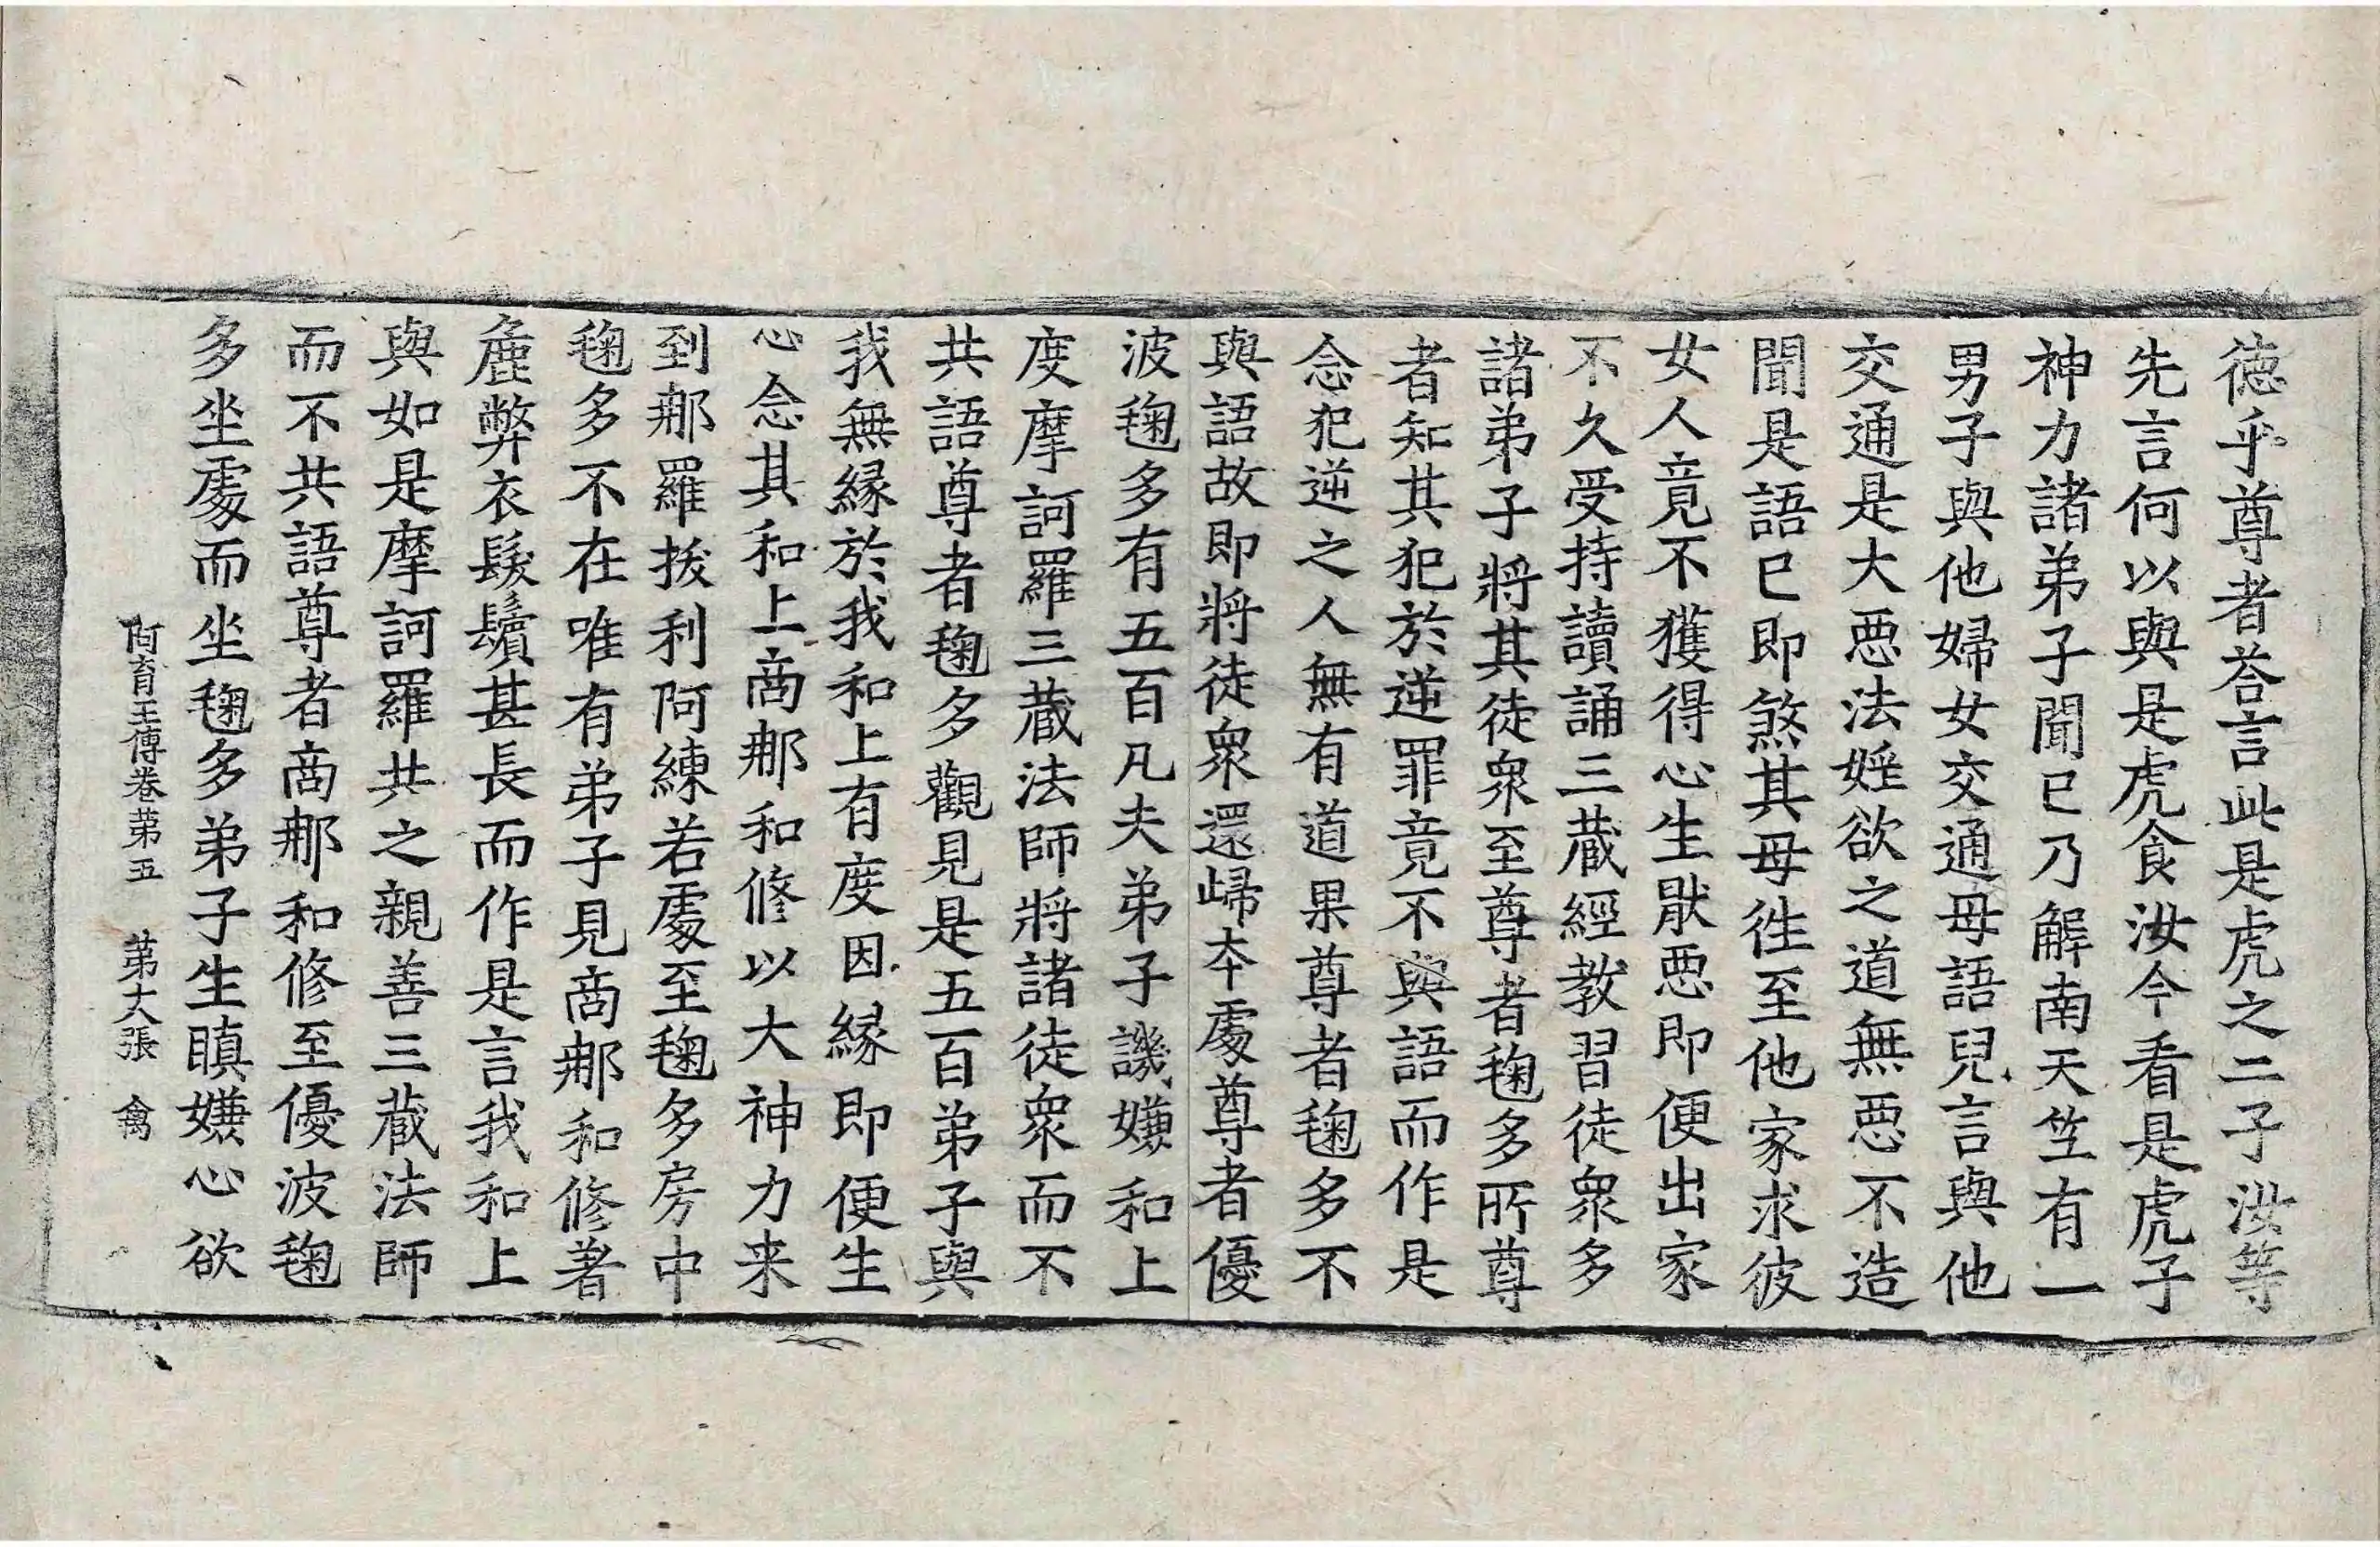 徳乎尊者荅言此是虎之二子汝等
先言何以與是虎食汝今看是虎子
神力諸弟子聞已乃解南天竺有一
男子與他婦女交通母語兒言與他
交通是大惡法婬欲之道無惡不造
聞是語已即煞其母徃至他家求彼
女人竟不獲得心生猒惡即便出家
不久受持讀誦三蔵經教習徒衆多
諸弟子將其徒衆至尊者毱多所尊
者知其犯於逆罪竟不與語而作是
念犯逆之人無有道果尊者毱多不
與語故即將徒衆還歸本處尊者優
波毱多有五百凡夫弟子譏嫌和上
度摩訶羅三蔵法師將諸徒衆而不
共語尊者毱多觀見是五百弟子與
我無縁於我和上有度因縁即便生
心念其和上商那和修以大神力来
到那羅拔利阿練若處至毱多房中
毱多不在唯有弟子見商那和修著
麁弊衣髮鬚甚長而作是言我和上
與如是摩訶羅共之親善三蔵法師
而不共語尊者商那和修至優波毱
多坐處而坐毱多弟子生瞋嫌心欲
阿育王傳卷苐五　苐大張　禽